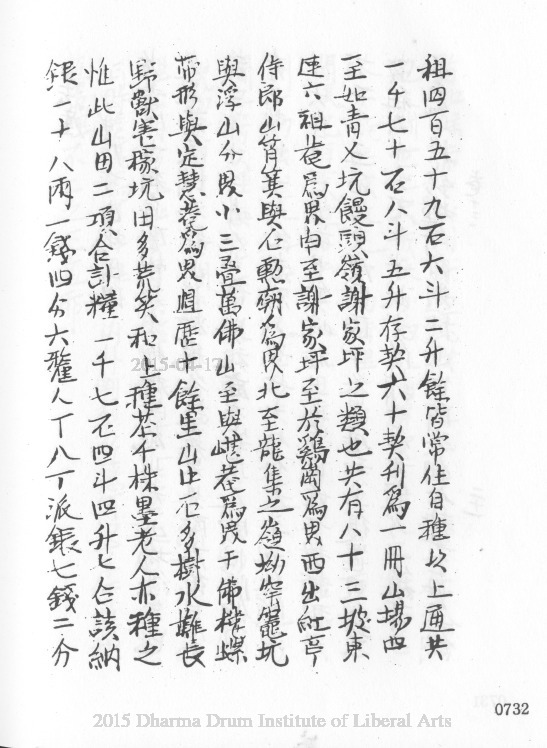 租四百五十九石六斗二升餘皆常住自種以上通共
一千七十石八斗五升存契六十契刊爲一冊山場四
至如青义坑饅頭嶺謝家坪之類也共有八十三坡東
連六祖菴爲界由至謝家坪至於鷄崗爲界西出紅亭
侍郎山筲箕與仁惠廟爲界北至龍集之嶺坳穿龍坑
與浮山分界小三疊萬佛山至與嶫菴爲界千佛樓蝶
帶形與定慧菴爲界週歷十餘里山上石多樹水難長
野獸害稼坑田多荒笑和上種茶千株墨老人亦種之
惟此山田二項合計糧一千七石四斗四升七合該納
銀一十八兩一錢四分六釐人丁八丁派銀七錢二分
2015-04-17
0732
2015 Dharma Drum Institute of Liberal Arts